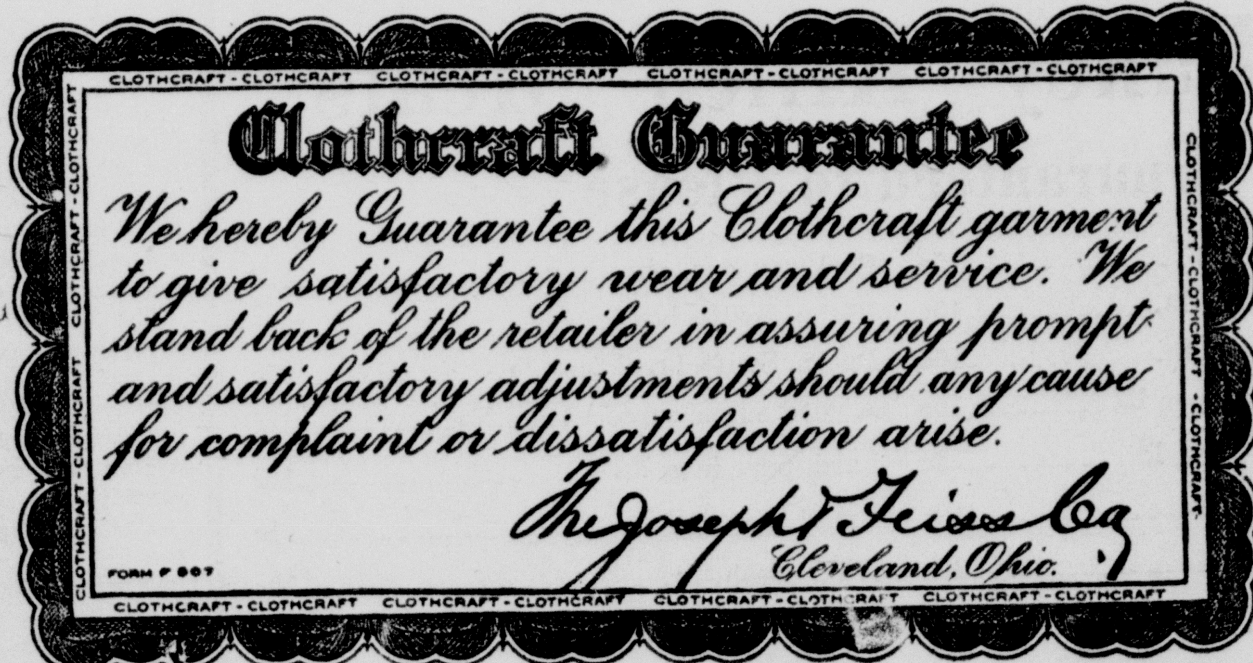 CLOTHCRAFT - CLOTHCRAFT CLOTHCRAFT - CLOTHCRAFT CLOTHCRAFT - CLOTHCRAFT CLOTHCRAFT - CLOTHCRAFT
CLOTHCRAFT - CLOTHCRAFT CLOTHCRAFT - CLOTHCRAFT
Clothcraft Guarantee
We hereby Guarantee this Clothcraft garment
to give satisfactory wear and service. We
stand back of the retailer in assuring prompt
and satisfactory adjustments should any cause
for complaint or dissatisfaction arise.
The Joseph & Feiss Co
Cleveland, Ohio.
FORM F 607
CLOTHCRAFT - CLOTHCRAFT - CLOTHCRAFT -
CLOTHCRAFT - CLOTHCRAFT CLOTHCRAFT - CLOTHCRAFT CLOTHCRAFT - CLOTHCRAFT CLOTHCRAFT - CLOTHCRAFT